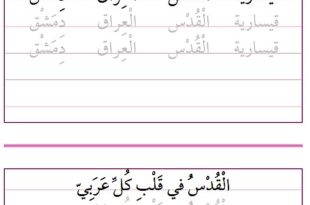 قيسارية الْقُدْس الْعِراق دِمَشْق
قيسارية الْقُدْس الْعِراق دِمَشْق
الْقُدْسُ في قَلْبِ كُلِّ عَرَبِيّ